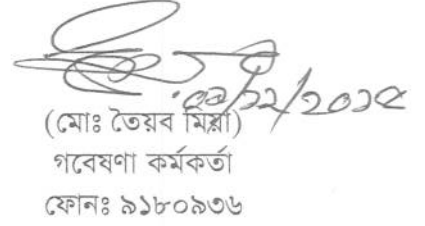 ০৯/১২/২০১৫
(মোঃ তৈয়ব মিয়া)
গবেষণা কর্মকর্তা
ফোনঃ ৯১৮০৯৩৬